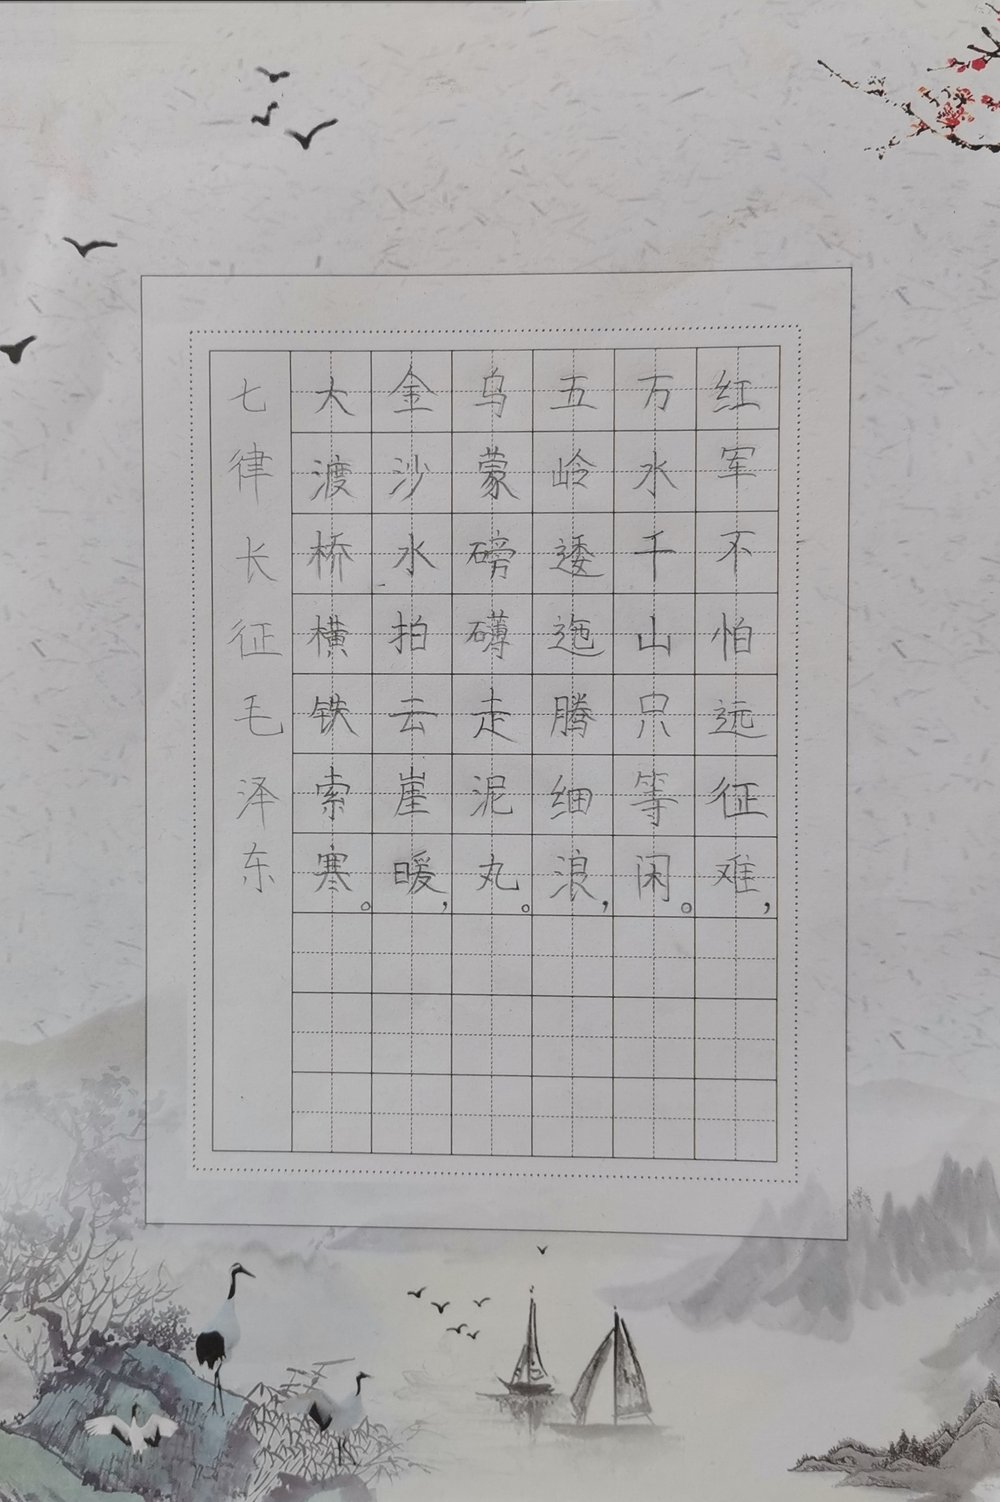 红军不怕远征难，
万水千山只等闲。
五岭逶迤腾细浪，
乌蒙磅礴走泥丸。
金沙水拍云崖暖，
大渡桥横铁索寒。
七律长征毛泽东